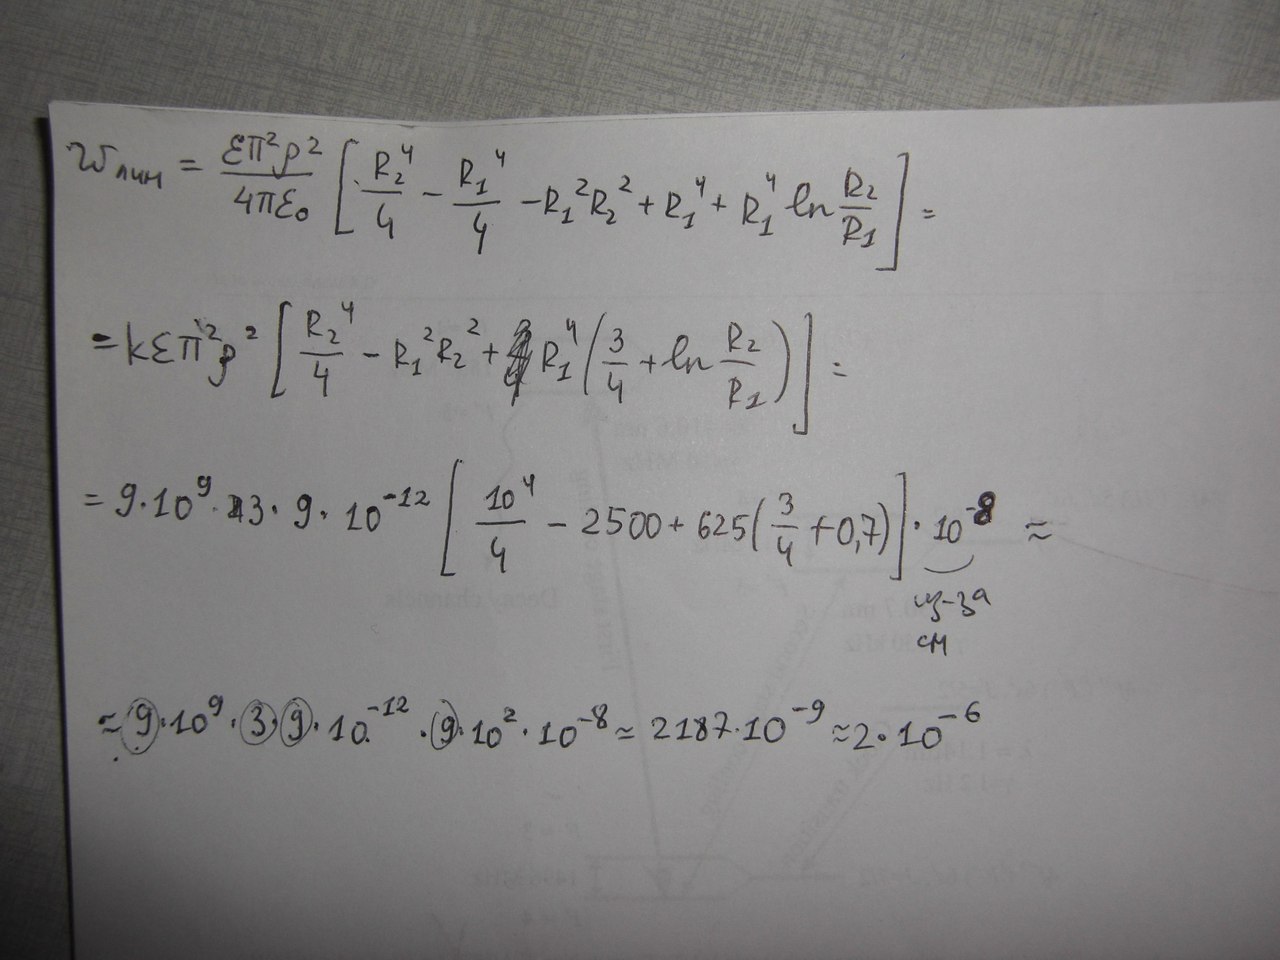 Wлин = επ²ρ²/4πε₀ [R₂⁴/4 − R₁⁴/4 − R₁²R₂² + R₁⁴ + R₁⁴ ln R₂/R₁] =
= kεπ²ρ² [R₂⁴/4 − R₁²R₂² + R₁⁴(3/4 + ln R₂/R₁)] =
= 9·10⁹·3·9·10⁻¹² [10⁴/4 − 2500 + 625(3/4 + 0,7)]·10⁻⁸ ≈
из-за
см
≈ 9·10⁹·3·9·10⁻¹²·9·10²·10⁻⁸ ≈ 2187·10⁻⁹ ≈ 2·10⁻⁶